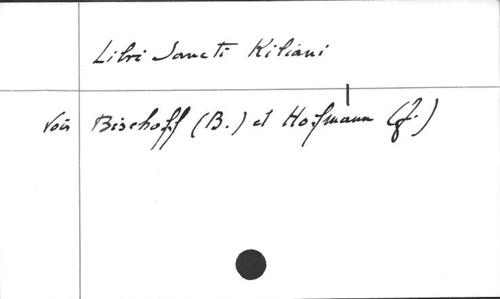 Libri Sancti Kiliani
Voir Bischoff (B.) et Hofmann (J.)